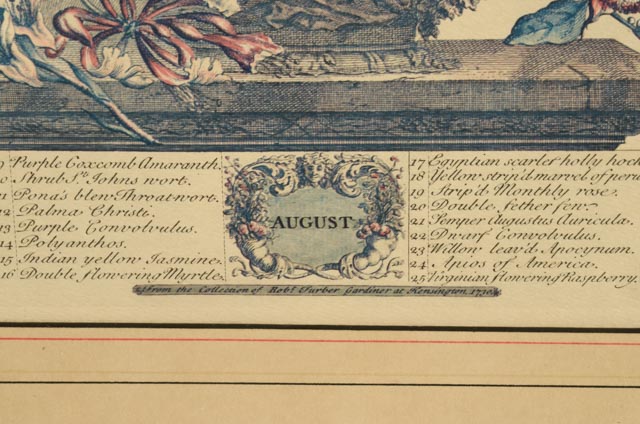 9 Purple Coxcomb Amaranth.
10 Shrub St. Johns wort.
11 Pona's blew Throatwort.
12 Palma Christi.
13 Purple Convolvulus.
14 Polyanthos.
15 Indian yellow Iasmine.
16 Double flowering Myrtle.
AUGUST.
17 Egyptian scarlet holly hock
18 Yellow strip'd marvel of peru
19 Strip'd Monthly rose.
20 Double fether few.
21 Semper Augustus Auricula.
22 Dwarf Convolvulus.
23 Willow leav'd Apocynum.
24 Apios of America.
25 Virginian flowering Raspberry.
From the Collection of Robt. Furber Gardiner at Kensington. 1730.